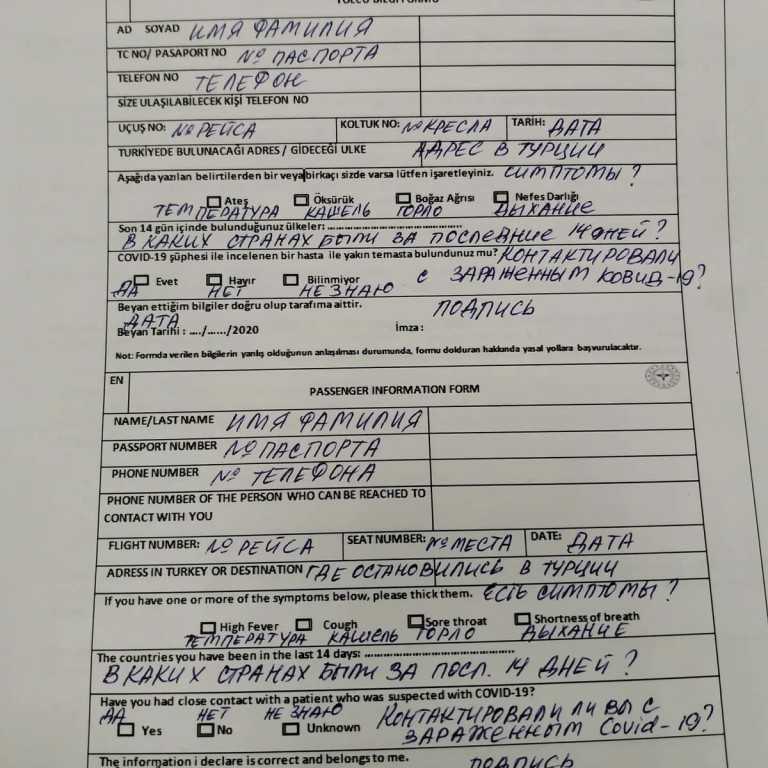 YOLCU BİLGİ FORMU
AD SOYAD ИМЯ ФАМИЛИЯ
TC NO/ PASAPORT NO № ПАСПОРТА
TELEFON NO ТЕЛЕФОН
SİZE ULAŞILABİLECEK KİŞİ TELEFON NO
UÇUŞ NO: № РЕЙСА KOLTUK NO: № КРЕСЛА TARİH: ДАТА
TURKİYEDE BULUNACAĞI ADRES / GİDECEĞİ ULKE АДРЕС В ТУРЦИИ
Aşağıda yazılan belirtilerden bir veya birkaçı sizde varsa lütfen işaretleyiniz. СИМПТОМЫ?
Ateş Öksürük Boğaz Ağrısı Nefes Darlığı
ТЕМПЕРАТУРА КАШЕЛЬ ГОРЛО ДЫХАНИЕ
Son 14 gün içinde bulunduğunuz ülkeler:
В КАКИХ СТРАНАХ БЫЛИ ЗА ПОСЛЕДНИЕ 14 ДНЕЙ?
COVID-19 şüphesi ile incelenen bir hasta ile yakın temasta bulundunuz mu? КОНТАКТИРОВАЛИ
Evet Hayır Bilinmiyor С ЗАРАЖЕННЫМ КОВИД-19?
ДА НЕТ НЕ ЗНАЮ
Beyan ettiğim bilgiler doğru olup tarafıma aittir. ПОДПИСЬ
ДАТА
Beyan Tarihi : ..../....../2020 İmza :
Not: Formda verilen bilgilerin yanlış olduğunun anlaşılması durumunda, formu dolduran hakkında yasal yollara başvurulacaktır.
EN
PASSENGER INFORMATION FORM
NAME/LAST NAME ИМЯ ФАМИЛИЯ
PASSPORT NUMBER № ПАСПОРТА
PHONE NUMBER № ТЕЛЕФОНА
PHONE NUMBER OF THE PERSON WHO CAN BE REACHED TO
CONTACT WITH YOU
FLIGHT NUMBER: № РЕЙСА SEAT NUMBER: № МЕСТА DATE: ДАТА
ADRESS IN TURKEY OR DESTINATION ГДЕ ОСТАНОВИЛИСЬ В ТУРЦИИ
If you have one or more of the symptoms below, please thick them. ЕСТЬ СИМПТОМЫ?
High Fever Cough Sore throat Shortness of breath
ТЕМПЕРАТУРА КАШЕЛЬ ГОРЛО ДЫХАНИЕ
The countries you have been in the last 14 days:
В КАКИХ СТРАНАХ БЫЛИ ЗА ПОСЛ. 14 ДНЕЙ?
Have you had close contact with a patient who was suspected with COVID-19?
ДА НЕТ НЕ ЗНАЮ КОНТАКТИРОВАЛИ ЛИ ВЫ С
Yes No Unknown ЗАРАЖЕННЫМ Covid-19?
The information i declare is correct and belongs to me. ПОДПИСЬ